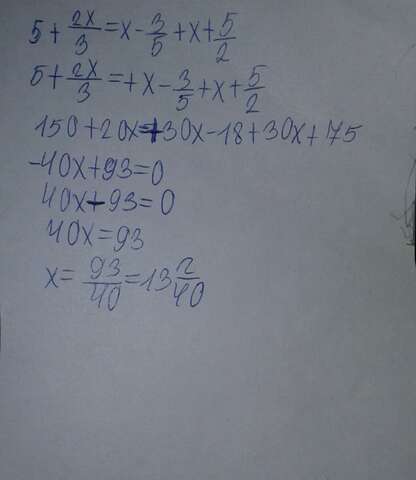 5 + 2x/3 = x - 3/5 + x + 5/2
5 + 2x/3 = + x - 3/5 + x + 5/2
150 + 20x + 30x - 18 + 30x + 75
-40x + 93 = 0
40x - 93 = 0
40x = 93
x = 93/40 = 13 2/40